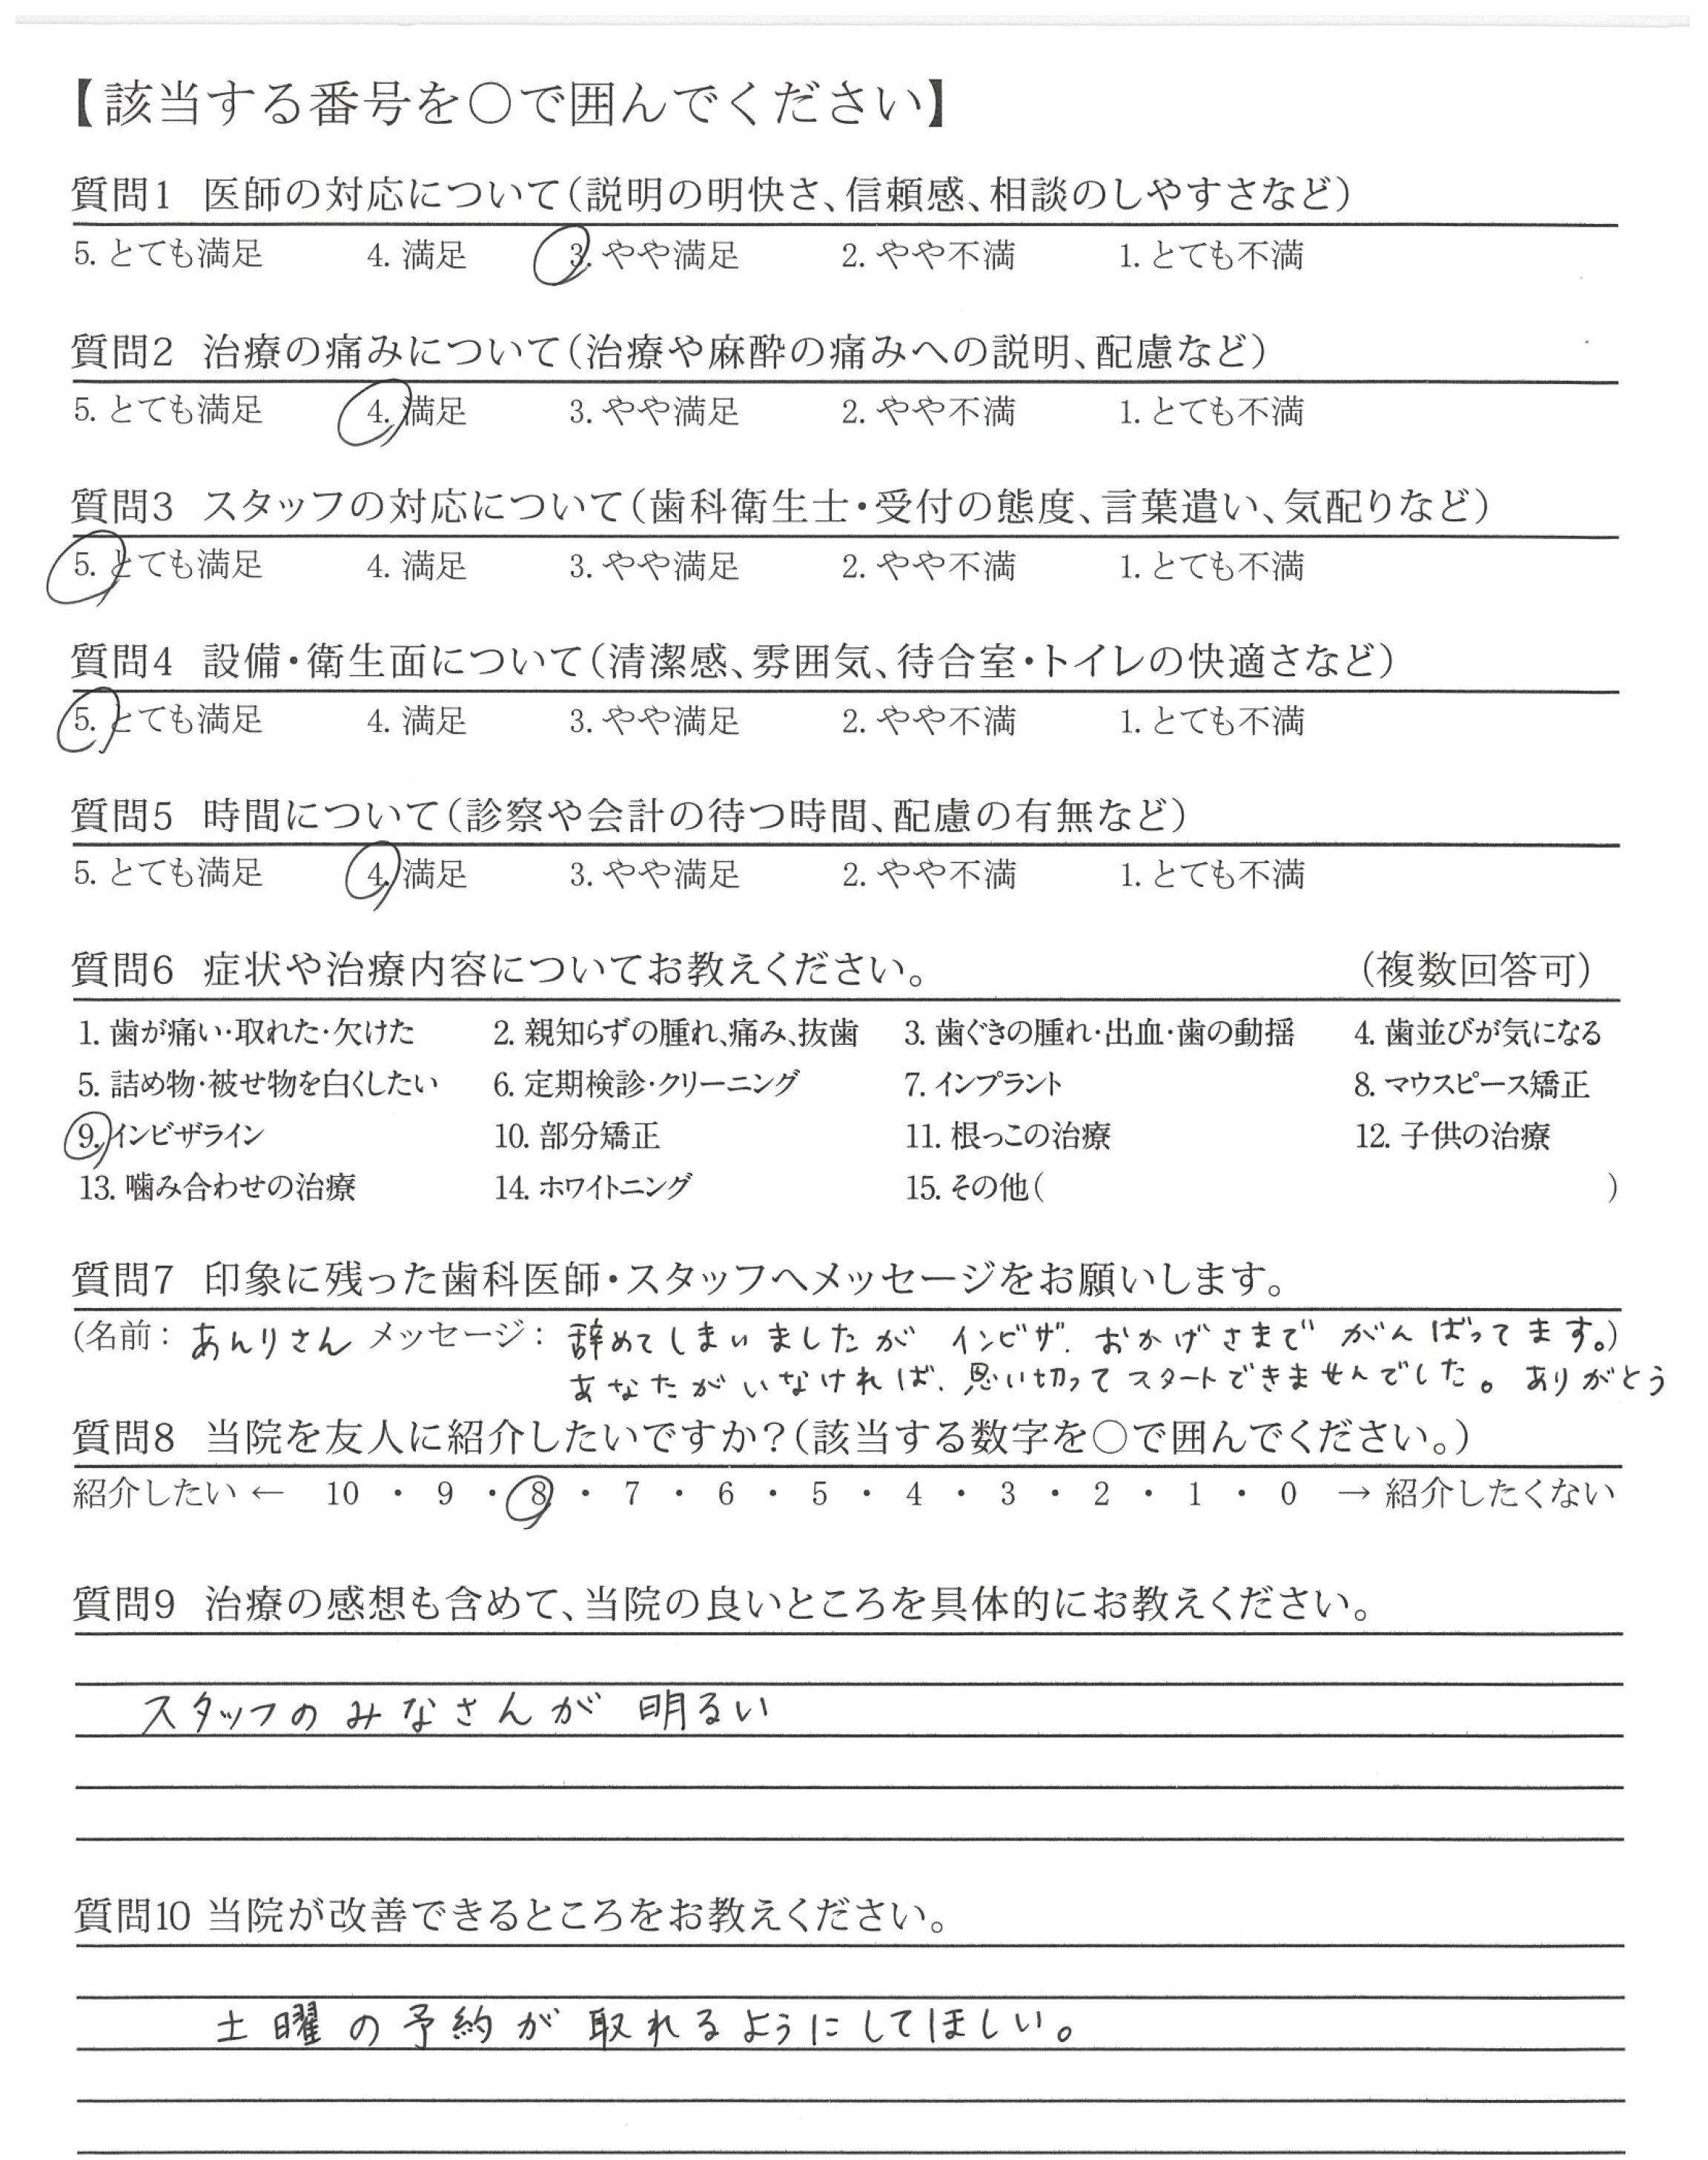 【該当する番号を○で囲んでください】
質問1 医師の対応について(説明の明快さ、信頼感、相談のしやすさなど)
5. とても満足 4. 満足 3. やや満足 2. やや不満 1. とても不満
質問2 治療の痛みについて(治療や麻酔の痛みへの説明、配慮など)
5. とても満足 4. 満足 3. やや満足 2. やや不満 1. とても不満
質問3 スタッフの対応について(歯科衛生士・受付の態度、言葉遣い、気配りなど)
5. とても満足 4. 満足 3. やや満足 2. やや不満 1. とても不満
質問4 設備・衛生面について(清潔感、雰囲気、待合室・トイレの快適さなど)
5. とても満足 4. 満足 3. やや満足 2. やや不満 1. とても不満
質問5 時間について(診察や会計の待つ時間、配慮の有無など)
5. とても満足 4. 満足 3. やや満足 2. やや不満 1. とても不満
質問6 症状や治療内容についてお教えください。 (複数回答可)
1. 歯が痛い・取れた・欠けた 2. 親知らずの腫れ、痛み、抜歯 3. 歯ぐきの腫れ・出血・歯の動揺 4. 歯並びが気になる
5. 詰め物・被せ物を白くしたい 6. 定期検診・クリーニング 7. インプラント 8. マウスピース矯正
9. インビザライン 10. 部分矯正 11. 根っこの治療 12. 子供の治療
13. 噛み合わせの治療 14. ホワイトニング 15. その他( )
質問7 印象に残った歯科医師・スタッフへメッセージをお願いします。
(名前: あんりさん メッセージ: 辞めてしまいましたが インビザ、おかげさまで がんばってます。)
あなたがいなければ、思い切ってスタートできませんでした。ありがとう
質問8 当院を友人に紹介したいですか?(該当する数字を○で囲んでください。)
紹介したい ← 10 ・ 9 ・ 8 ・ 7 ・ 6 ・ 5 ・ 4 ・ 3 ・ 2 ・ 1 ・ 0 → 紹介したくない
質問9 治療の感想も含めて、当院の良いところを具体的にお教えください。
スタッフのみなさんが 明るい
質問10 当院が改善できるところをお教えください。
土曜の予約が取れるようにしてほしい。